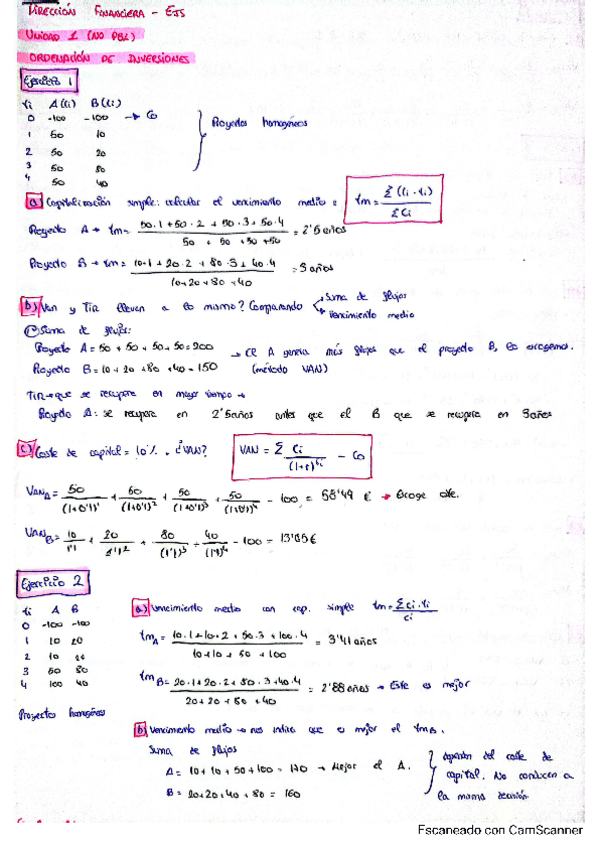 DIRECCIÓN FINANCIERA - EJS
UNIDAD 1 (NO PBL)
ORDENACIÓN DE INVERSIONES
Ejercicio 1
ti A(Ci) B(Ci)
0 -100 -100 → Co
1 50 10
2 50 20
3 50 80
4 50 40
Proyectos homogéneos
a) Capitalización simple: calcular el vencimiento medio: tm = Σ(Ci·ti) / ΣCi
Proyecto A → tm = 50·1+50·2+50·3+50·4 / 50+50+50+50 = 2'5 años
Proyecto B → tm = 10·1+20·2+80·3+40·4 / 10+20+80+40 = 3 años
b) Van y TIR llevan a lo mismo? Comparando Suma de flujos
Vencimiento medio
Suma de flujos:
Proyecto A = 50+50+50+50=200 → el A genera más flujos que el proyecto B, lo escogemos.
Proyecto B = 10+20+80+40=150 (método VAN)
TIR → que se recupera en mayor tiempo →
Proyecto A: se recupera en 2'5años antes que el B que se recupera en 3años
c) Coste de capital = 10%. ¿VAN? VAN = Σ Ci / (1+r)^ti - Co
VAN A = 50/(1+0'1)^1 + 50/(1+0'1)^2 + 50/(1+0'1)^3 + 50/(1+0'1)^4 - 100 = 58'49 € → Escoge
VAN B = 10/1'1 + 20/(1'1)^2 + 80/(1'1)^3 + 40/(1'1)^4 - 100 = 13'05€
Ejercicio 2
ti A B
0 -100 -100
1 10 20
2 10 20
3 50 80
4 100 40
Proyectos homogéneos
a) Vencimiento medio con cap. simple tm = ΣCi·ti / Ci
tm A = 10·1+10·2+50·3+100·4 / 10+10+50+100 = 3'41 años
tm B = 20·1+20·2+80·3+40·4 / 20+20+80+40 = 2'88 años → Este es mejor
b) Vencimiento medio → nos indica que es mejor el tm B.
Suma de flujos
A = 10+10+50+100 = 170 → Mejor el A.
B = 20+20+40+80 = 160
dependen del coste de
capital. No conducen a
la misma decisión
Escaneado con CamScanner